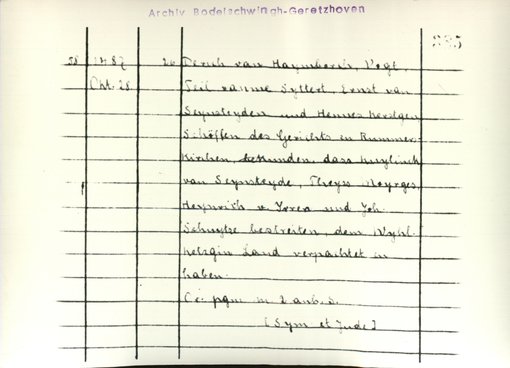 Archiv Bodelschwingh-Geretzhoven
335
58 1487 26 Dirich van Haymbach, Vogt,
Okt. 28 Teil ranme Syllert, Ernst van
Seynsteyden und Hennes Herdgen
Schöffen des Gerichts zu Rummer
Kirchen, bekunden, dass
van Seynsteyde, Theys Moyrges,
Heynrich v. Irren und Joh.
Schuylze bestreiten, dem Wyhl
Land verpachtet zu
haben.
Or. pgm. m. 2 anh. S.
[Sym et Jude]